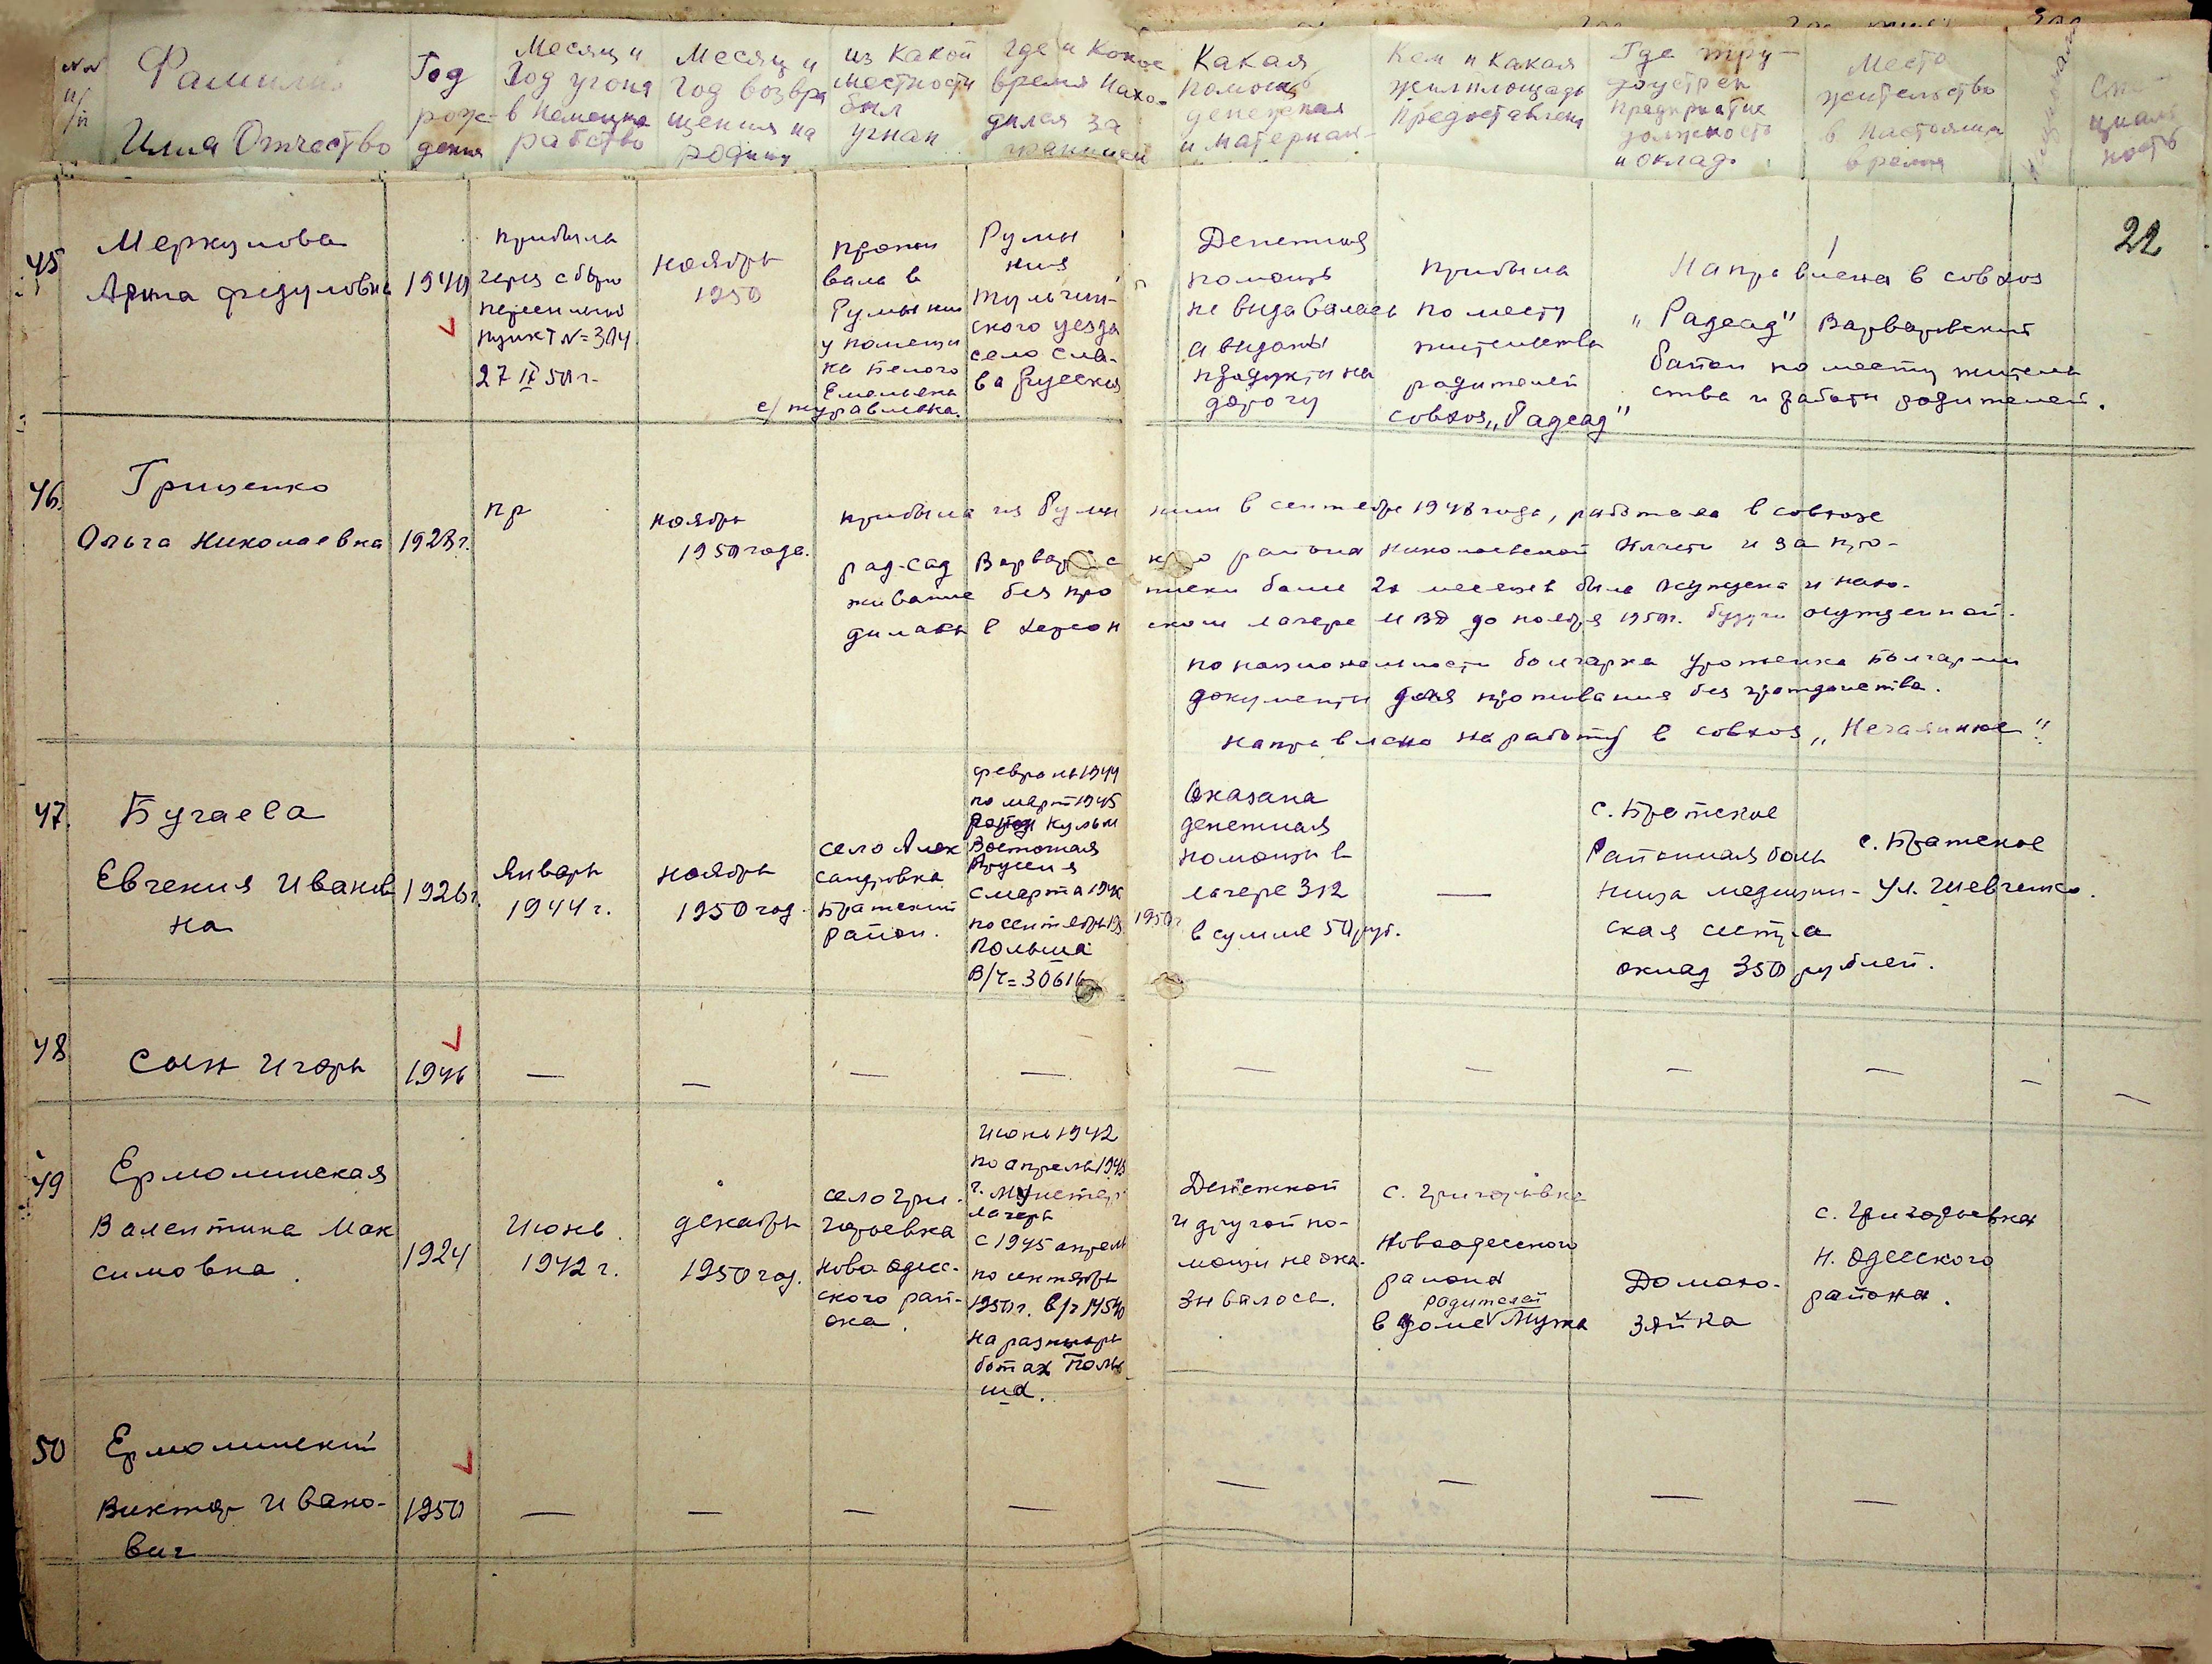 NN п/п
Фамилия
Имя Отчество
Год
рож-
дения
Месяц и
Год угона
в немецкое
рабство
Месяц и
год возвра
щения на
родину
из какой
местности
был
угнан
где и какое
время нахо-
дился за
границей
Какая
помощь
денежная
и материал-
Кем и какая
жилплощадь
предоставлена
Где тру-
доустроен
предприятие
должность
и оклад.
Место
жительство
в настоящее
время
Спе
циаль
ность
22
45
Меркулова
Арина федуловна
1940
прибыла
через сборно
пересыльный
пункт N=304
27 IX 50 г.
ноябрь
1950
прожи
вала в
Румынии
у помещи
ка Белого
Емельяна
с/ журавлевка.
Румы
ния
тульчин-
ского уезда
село Сла-
ва Русския
Денежная
помощь
не видавалась
а виданы
продукты на
дорогу
прибыла
по месту
жительства
родителей
совхоз „Радсад"
Направлена в совхоз
„Радсад" Варваровский
район по месту житель
ства и работы родителей.
46.
Грищенко
Ольга Николаевна
1923 г.
пр
ноябрь
1950 года.
прибыла из Румынии в сентябре 1948 года, работала в совхозе
рад-сад Варваровского района Николаевской области и за про-
живание без прописки более 2х месяцев была осуждена и нахо-
дилась в Херсонском лагере МВД до ноября 1950 г. будучи осужденной.
по национальности болгарка уроженка Болгарии
документы для проживания без гражданства.
направлена на работу в совхоз „Нечаянное"
47.
Бугаева
Евгения Иванов
на
1926 г.
Январь
1944 г.
ноябрь
1950 год.
село Алек
сандровка
Братский
район.
февраль 1944
по март 1945
город Кульм
Восточная
Пруссия
с марта 1945
по сентябрь 1950 г
Польша
В/ч = 30616
Оказана
денежная
помощь в
лагере 312
в сумме 50 руб.
—
с. Братское
Районная боль
ница медицин-
ская сестра
оклад 350 рублей.
с. Братское
ул. Шевченко.
48
Сын Игорь
1946
— — — — — — — — — —
49
Ермолинская
Валентина Мак
симовна.
1924
Июнь
1942 г.
декабрь
1950 год.
село Гри-
горьевка
Ново одес-
ского рай-
она.
Июнь 1942
по апрель 1945
г. Мунстер
лагерь
с 1945 апрель
по сентябрь
1950 г. в/ч
на разных ра
ботах Поль
ша.
Денежной
и другой по-
мощи не ока-
зывалось.
с. Григорьевка
Новоодесского
района
родителей
в доме Мужа
Домохо-
зяйка
с. Григорьевка
Н. Одесского
района.
50
Ермолинский
Виктор Ивано-
вич
1950
— — — — — — — —